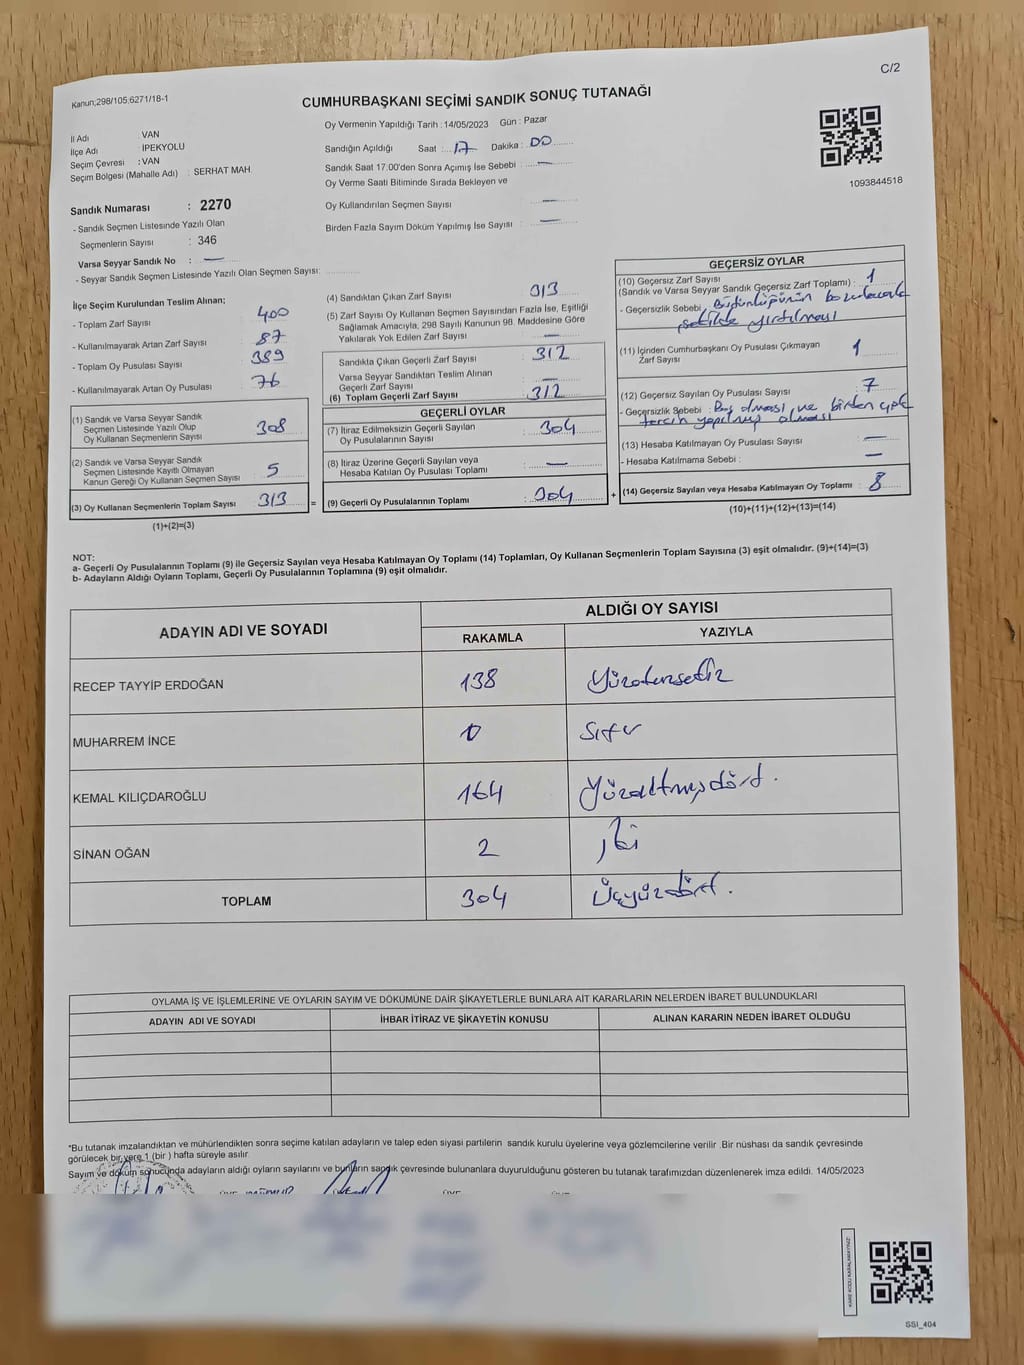 C/2
Kanun;298/105;6271/18-1
CUMHURBAŞKANI SEÇİMİ SANDIK SONUÇ TUTANAĞI
İl Adı : VAN
İlçe Adı : İPEKYOLU
Seçim Çevresi : VAN
Seçim Bölgesi (Mahalle Adı) : SERHAT MAH.
Sandık Numarası : 2270
- Sandık Seçmen Listesinde Yazılı Olan
Seçmenlerin Sayısı : 346
Varsa Seyyar Sandık No : —
- Seyyar Sandık Seçmen Listesinde Yazılı Olan Seçmen Sayısı:
Oy Vermenin Yapıldığı Tarih : 14/05/2023 Gün : Pazar
Sandığın Açıldığı Saat : 17 Dakika : 00
Sandık Saat 17:00'den Sonra Açımış İse Sebebi : —
Oy Verme Saati Bitiminde Sırada Bekleyen ve
Oy Kullandırılan Seçmen Sayısı : —
Birden Fazla Sayım Döküm Yapılmış İse Sayısı : —
1093844518
İlçe Seçim Kurulundan Teslim Alınan;
- Toplam Zarf Sayısı : 400
- Kullanılmayarak Artan Zarf Sayısı : 87
- Toplam Oy Pusulası Sayısı : 389
- Kullanılmayarak Artan Oy Pusulası : 76
(1) Sandık ve Varsa Seyyar Sandık
Seçmen Listesinde Yazılı Olup
Oy Kullanan Seçmenlerin Sayısı : 308
(2) Sandık ve Varsa Seyyar Sandık
Seçmen Listesinde Kayıtlı Olmayan
Kanun Gereği Oy Kullanan Seçmen Sayısı : 5
(3) Oy Kullanan Seçmenlerin Toplam Sayısı : 313 =
(1)+(2)=(3)
(4) Sandıktan Çıkan Zarf Sayısı : 313
(5) Zarf Sayısı Oy Kullanan Seçmen Sayısından Fazla İse, Eşitliği
Sağlamak Amacıyla, 298 Sayılı Kanunun 98. Maddesine Göre
Yakılarak Yok Edilen Zarf Sayısı : —
Sandıkta Çıkan Geçerli Zarf Sayısı : 312
Varsa Seyyar Sandıktan Teslim Alınan
Geçerli Zarf Sayısı : —
(6) Toplam Geçerli Zarf Sayısı : 312
GEÇERLİ OYLAR
(7) İtiraz Edilmeksizin Geçerli Sayılan
Oy Pusulalarının Sayısı : 304
(8) İtiraz Üzerine Geçerli Sayılan veya
Hesaba Katılan Oy Pusulası Toplamı : —
(9) Geçerli Oy Pusulalarının Toplamı : 304 +
GEÇERSİZ OYLAR
(10) Geçersiz Zarf Sayısı
(Sandık ve Varsa Seyyar Sandık Geçersiz Zarf Toplamı) : 1
- Geçersizlik Sebebi : Bütünlüğünün bozulacak
şekilde yırtılması
(11) İçinden Cumhurbaşkanı Oy Pusulası Çıkmayan
Zarf Sayısı : 1
(12) Geçersiz Sayılan Oy Pusulası Sayısı : 7
- Geçersizlik Sebebi : Boş olması ve birden çok
tercih yapılmış olması
(13) Hesaba Katılmayan Oy Pusulası Sayısı : —
- Hesaba Katılmama Sebebi : —
(14) Geçersiz Sayılan veya Hesaba Katılmayan Oy Toplamı : 8
(10)+(11)+(12)+(13)=(14)
NOT:
a- Geçerli Oy Pusulalarının Toplamı (9) ile Geçersiz Sayılan veya Hesaba Katılmayan Oy Toplamı (14) Toplamları, Oy Kullanan Seçmenlerin Toplam Sayısına (3) eşit olmalıdır. (9)+(14)=(3)
b- Adayların Aldığı Oyların Toplamı, Geçerli Oy Pusulalarının Toplamına (9) eşit olmalıdır.
ADAYIN ADI VE SOYADI
ALDIĞI OY SAYISI
RAKAMLA YAZIYLA
RECEP TAYYİP ERDOĞAN 138 Yüzotuzsekiz
MUHARREM İNCE 0 Sıfır
KEMAL KILIÇDAROĞLU 164 Yüzaltmışdört.
SİNAN OĞAN 2 İki
TOPLAM 304 Üçyüzdört.
OYLAMA İŞ VE İŞLEMLERİNE VE OYLARIN SAYIM VE DÖKÜMÜNE DAİR ŞİKAYETLERLE BUNLARA AİT KARARLARIN NELERDEN İBARET BULUNDUKLARI
ADAYIN ADI VE SOYADI İHBAR İTİRAZ VE ŞİKAYETİN KONUSU ALINAN KARARIN NEDEN İBARET OLDUĞU
*Bu tutanak imzalandıktan ve mühürlendikten sonra seçime katılan adayların ve talep eden siyasi partilerin sandık kurulu üyelerine veya gözlemcilerine verilir .Bir nüshası da sandık çevresinde
görülecek bir yere 1 (bir ) hafta süreyle asılır.
Sayım ve döküm sonucunda adayların aldığı oyların sayılarını ve bunların sandık çevresinde bulunanlara duyurulduğunu gösteren bu tutanak tarafımızdan düzenlenerek imza edildi. 14/05/2023
SSI_404